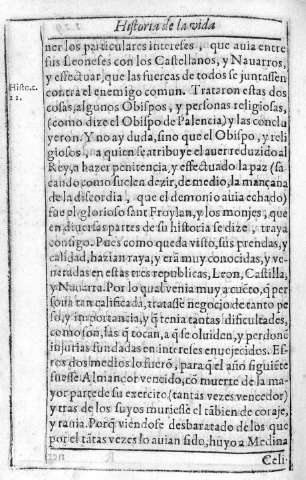 Historia de la vida
ner los particulares intereses, que auia entre
sus Leoneses con los Castellanos, y Nauarros,
y effectuar, que las fuercas de todos se juntassen
Histe.c.
21.
contra el enemigo comun. Trataron estas dos
cosas, algunos Obispos, y personas religiosas,
(como dize el Obispo de Palencia) y las conclu
yeron. Y no ay duda, sino que el Obispo, y reli
giosos, a quien se atribuye el auer reduzido al
Rey, a hazer penitencia, y effectuado la paz (sa
cando como suelen dezir, de medio, la mançana
de la discordia, que el demonio auia echado)
fue el glorioso sant Froylan, y los monjes, que
en diuersas partes de su historia se dize, traya
consigo. Pues como queda visto, sus prendas, y
calidad, hazian raya, y erã muy conocidas, y ve-
neradas en estas tres republicas, Leon, Castilla,
y Nauarra. Por lo qual venia muy a cuẽto, q̃ per
sona tan calificada, tratasse negocio de tanto pe
so, y importancia, y q̃ tenia tantas dificultades,
como son, las q̃ tocan, a q̃ se oluiden, y perdonẽ
injurias fundadas en intereses enuejecidos. Es-
tos dos medios lo fuerõ, para q̃ el año siguiẽte
fuesse Almançor vencido, cõ muerte de la ma-
yor parte de su exercito, (tantas vezes vencedor)
y tras de los suyos muriesse el tãbien de coraje,
y rauia. Porq̃ viendose desbaratado de los que
por el tãtas vezes lo auian sido, huyo a Medina
Celi-